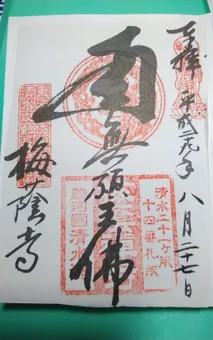 奉拝 平成二九年
八月二十七日
南無願王佛
清水二十一ヶ所
十四番札所
駿河國清水
梅蔭寺